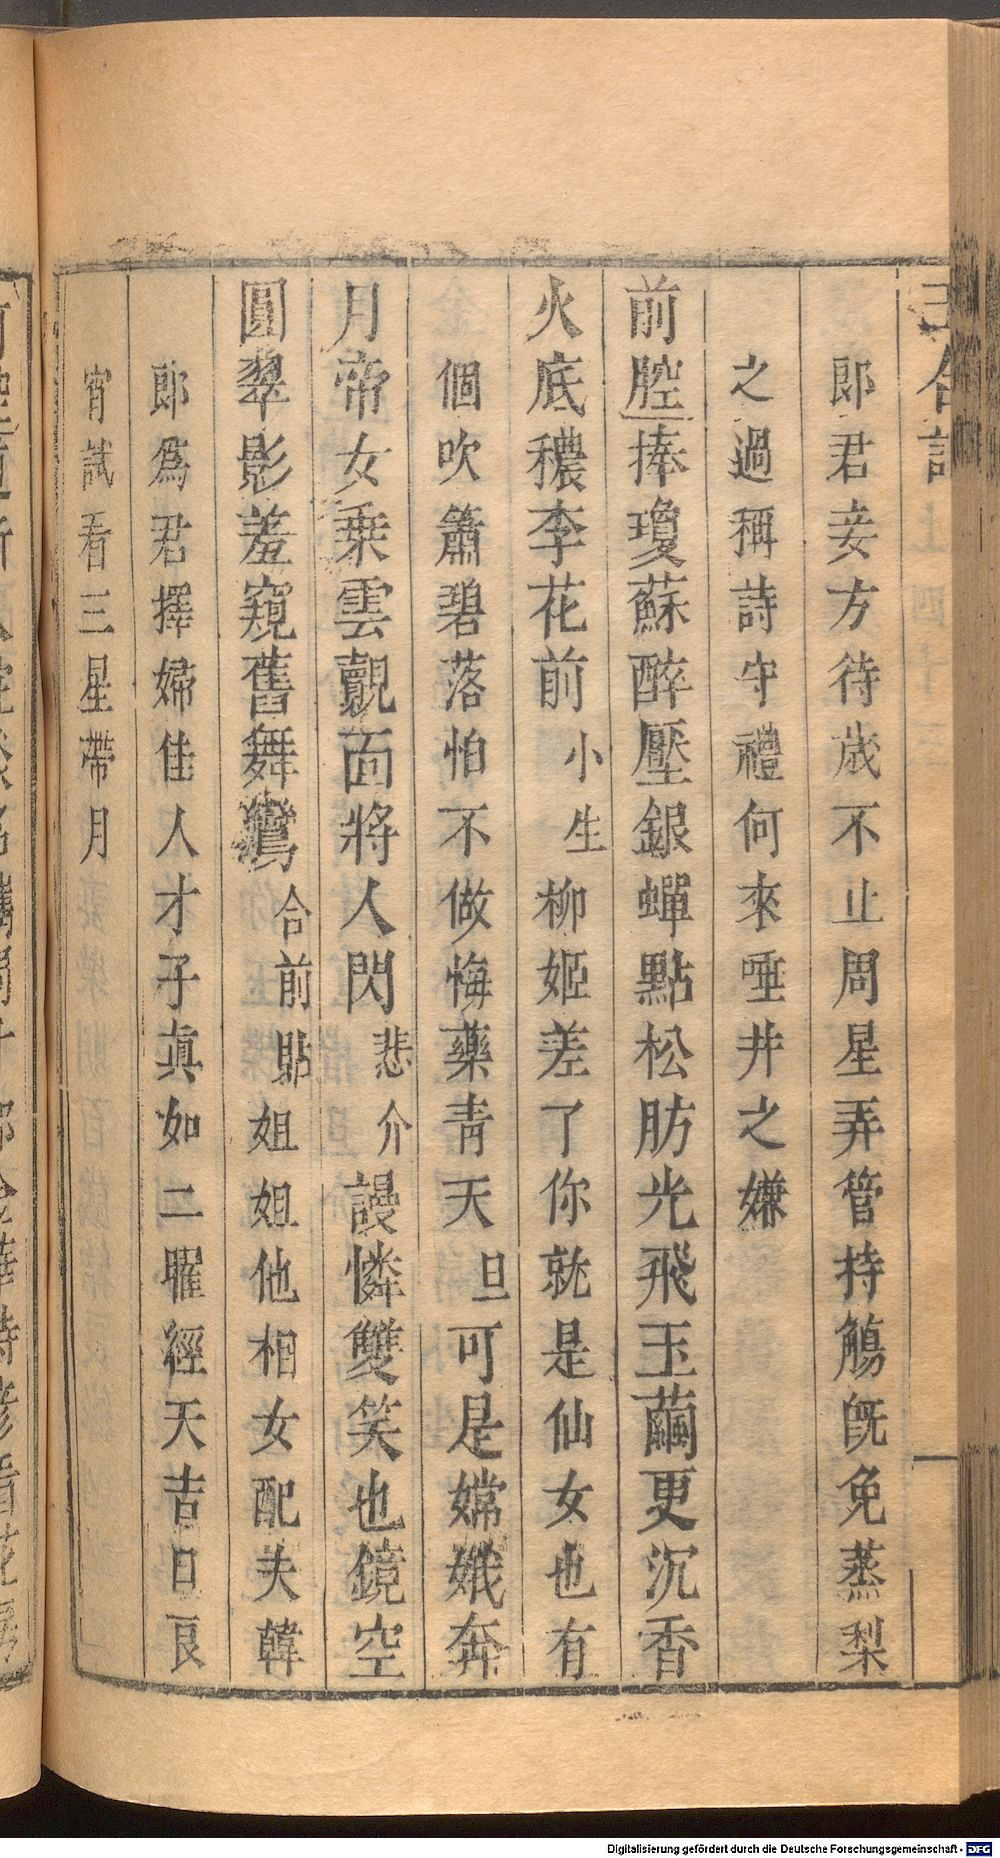 玉合記
郎君妾方待歲不止周星弄管持觴旣免蒸梨
之過稱詩守禮何來唾井之嫌
前腔捧瓊蘇醉壓銀蟬點松肪光飛玉繭更沉香
火底穠李花前小生柳姬差了你就是仙女也有
個吹簫碧落怕不做悔藥青天旦可是嫦娥奔
月帝女乘雲覿面將人閃悲介謾憐雙笑也鏡空
圓翠影羞窺舊舞鸞合前貼姐姐他相女配夫韓
郎爲君擇婦佳人才子眞如二曜經天吉日良
宵試看三星帶月
Digitalisierung gefördert durch die Deutsche Forschungsgemeinschaft - DFG